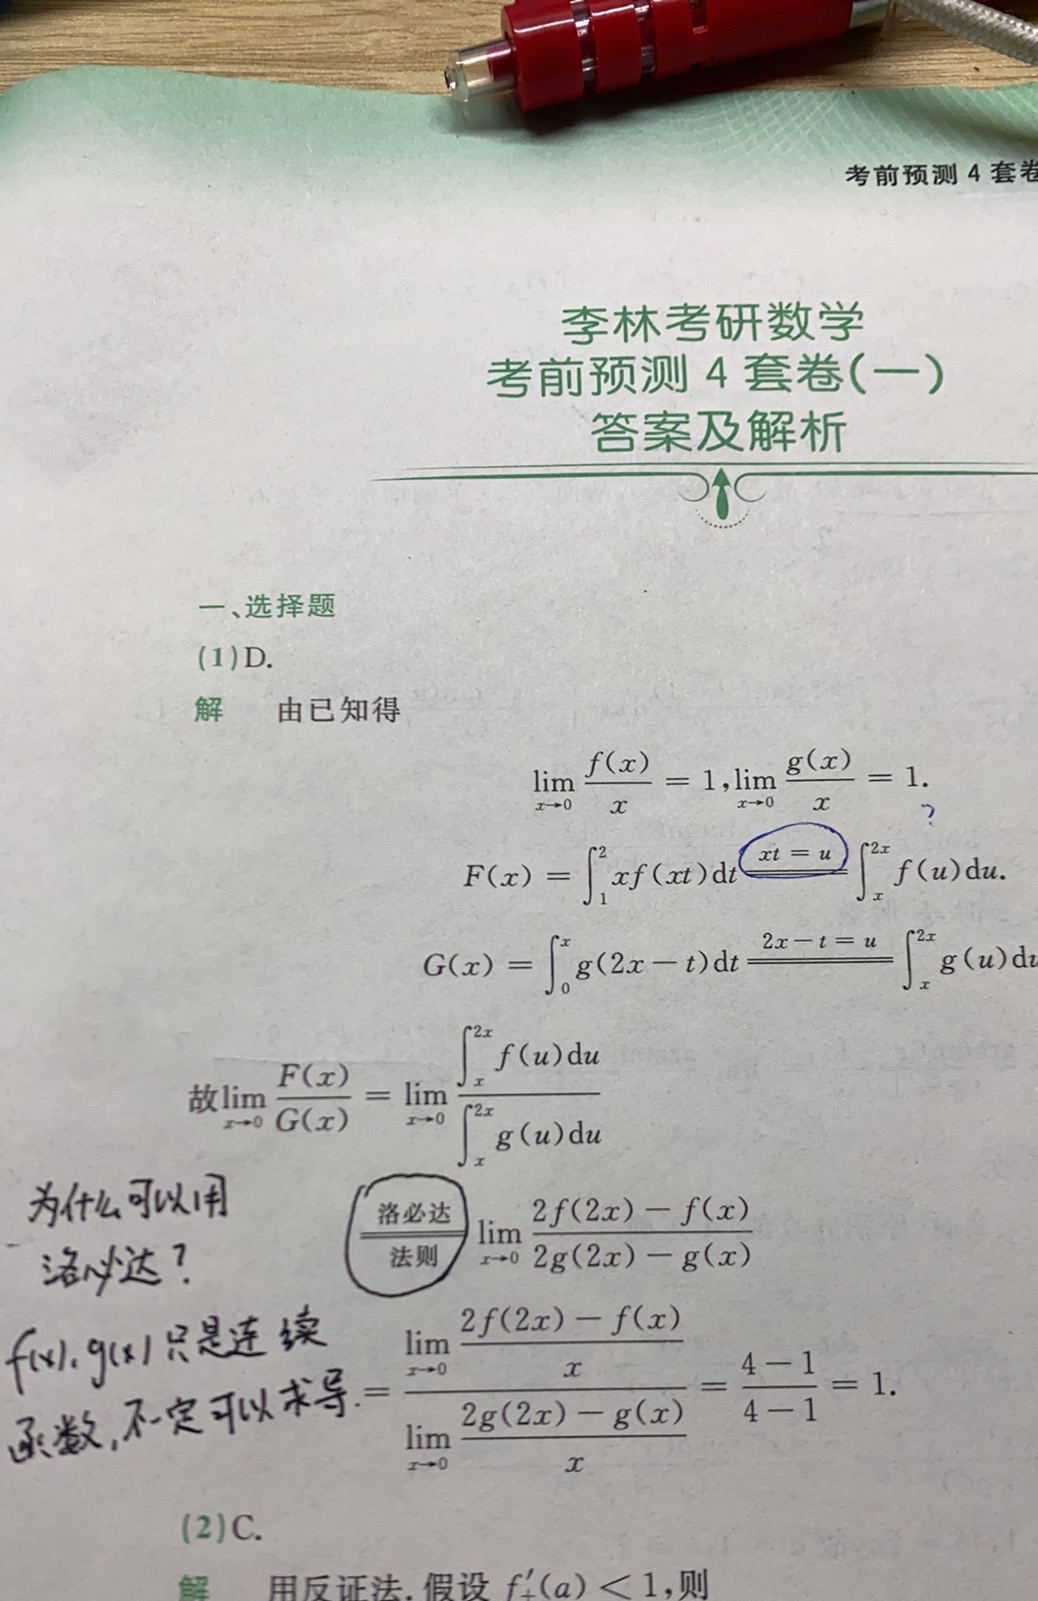 考前预测 4 套卷
李林考研数学
考前预测 4 套卷(一)
答案及解析
一、选择题
(1)D.
解 由已知得
lim_{x→0} f(x)/x = 1, lim_{x→0} g(x)/x = 1.
?
F(x) = ∫_1^2 xf(xt)dt \xlongequal{xt = u} ∫_x^{2x} f(u)du.
G(x) = ∫_0^x g(2x − t)dt \xlongequal{2x − t = u} ∫_x^{2x} g(u)du
故 lim_{x→0} F(x)/G(x) = lim_{x→0} ∫_x^{2x} f(u)du / ∫_x^{2x} g(u)du
为什么可以用
洛必达?
洛必达法则 lim_{x→0} (2f(2x) − f(x))/(2g(2x) − g(x))
f(x)、g(x)只是连续
函数,不一定可以求导.
= lim_{x→0} (2f(2x) − f(x))/x / lim_{x→0} (2g(2x) − g(x))/x = (4 − 1)/(4 − 1) = 1.
(2)C.
解 用反证法. 假设 f′_+(a) < 1,则